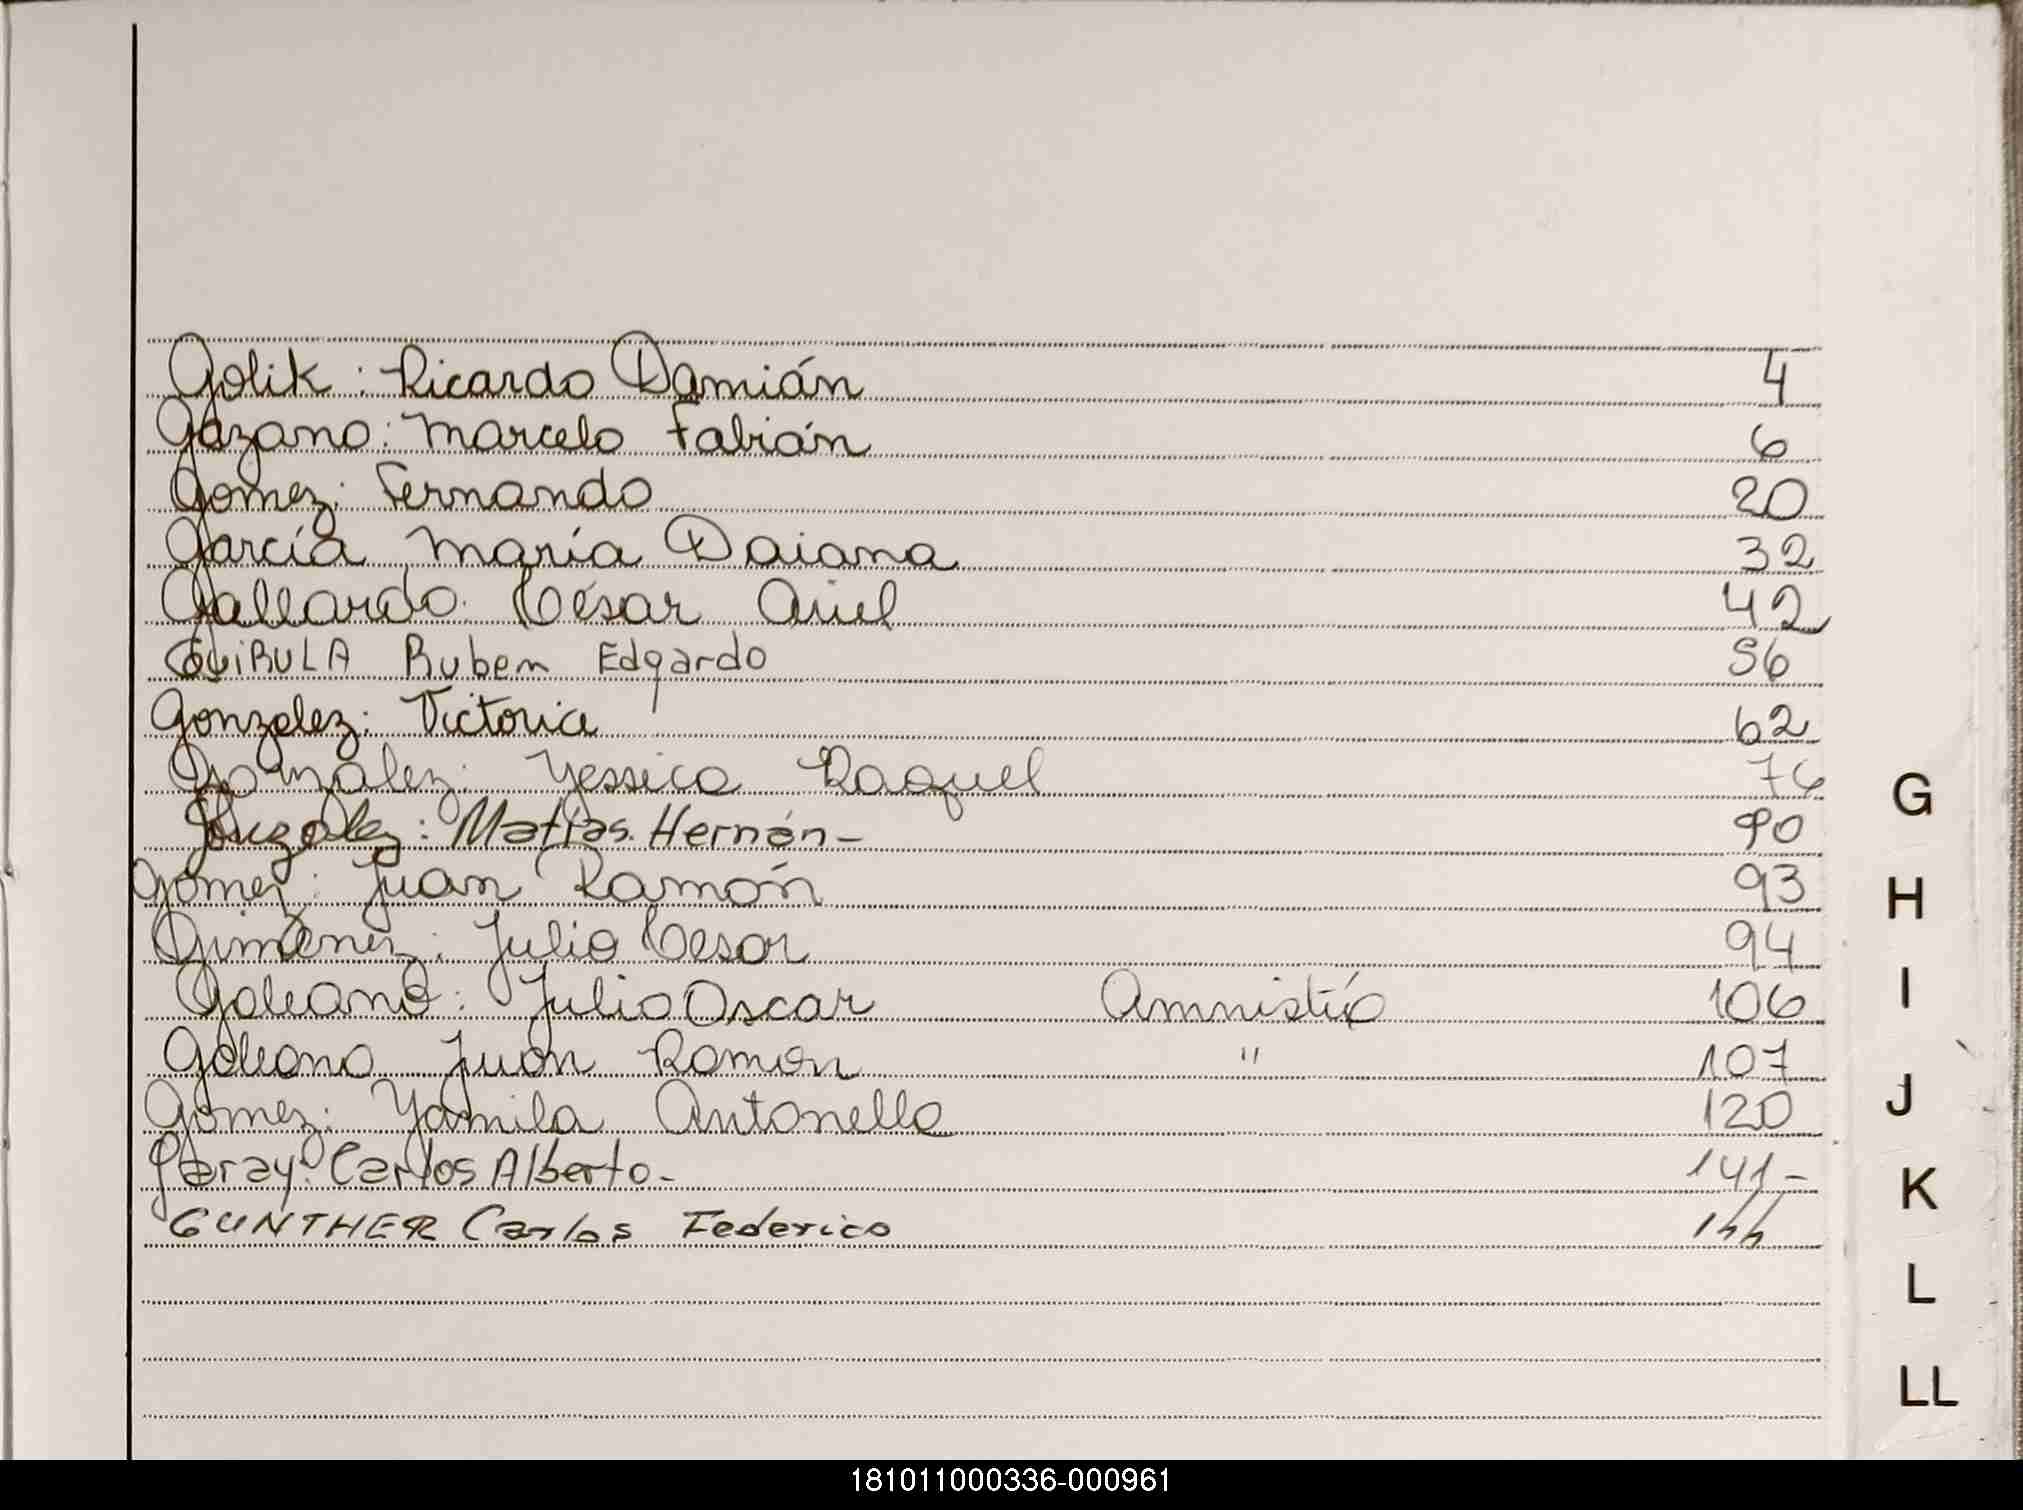 Golik: Ricardo Damián 4
Gazano: Marcelo Fabián 6
Gomez: Fernando 20
García María Daiana 32
Gallardo: César Ariel 42
GUiRULA Ruben Edgardo 56
Gonzalez: Victoria 62
Gonzalez: Yessica Raquel 76
Gonzalez: Matías Hernán- 90
Gomez: Juan Ramón 93
Gimenez: Julio Cesar 94
Galeano: Julio Oscar Amnistía 106
Galeano Juan Ramon " 107
Gomez: Yamila Antonella 120
Garay: Carlos Alberto- 141-
GUNTHER Carlos Federico 144
G
H
I
J
K
L
LL
181011000336-000961